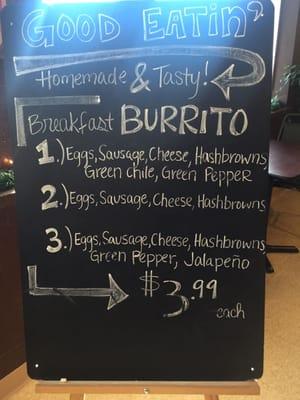 GOOD EATIN'
Homemade & Tasty!
Breakfast BURRITO
1.) Eggs, Sausage, Cheese, Hashbrowns,
Green chile, Green Pepper
2.) Eggs, Sausage, Cheese, Hashbrowns
3.) Eggs, Sausage, Cheese, Hashbrowns
Green Pepper, Jalapeño
$3.99
each